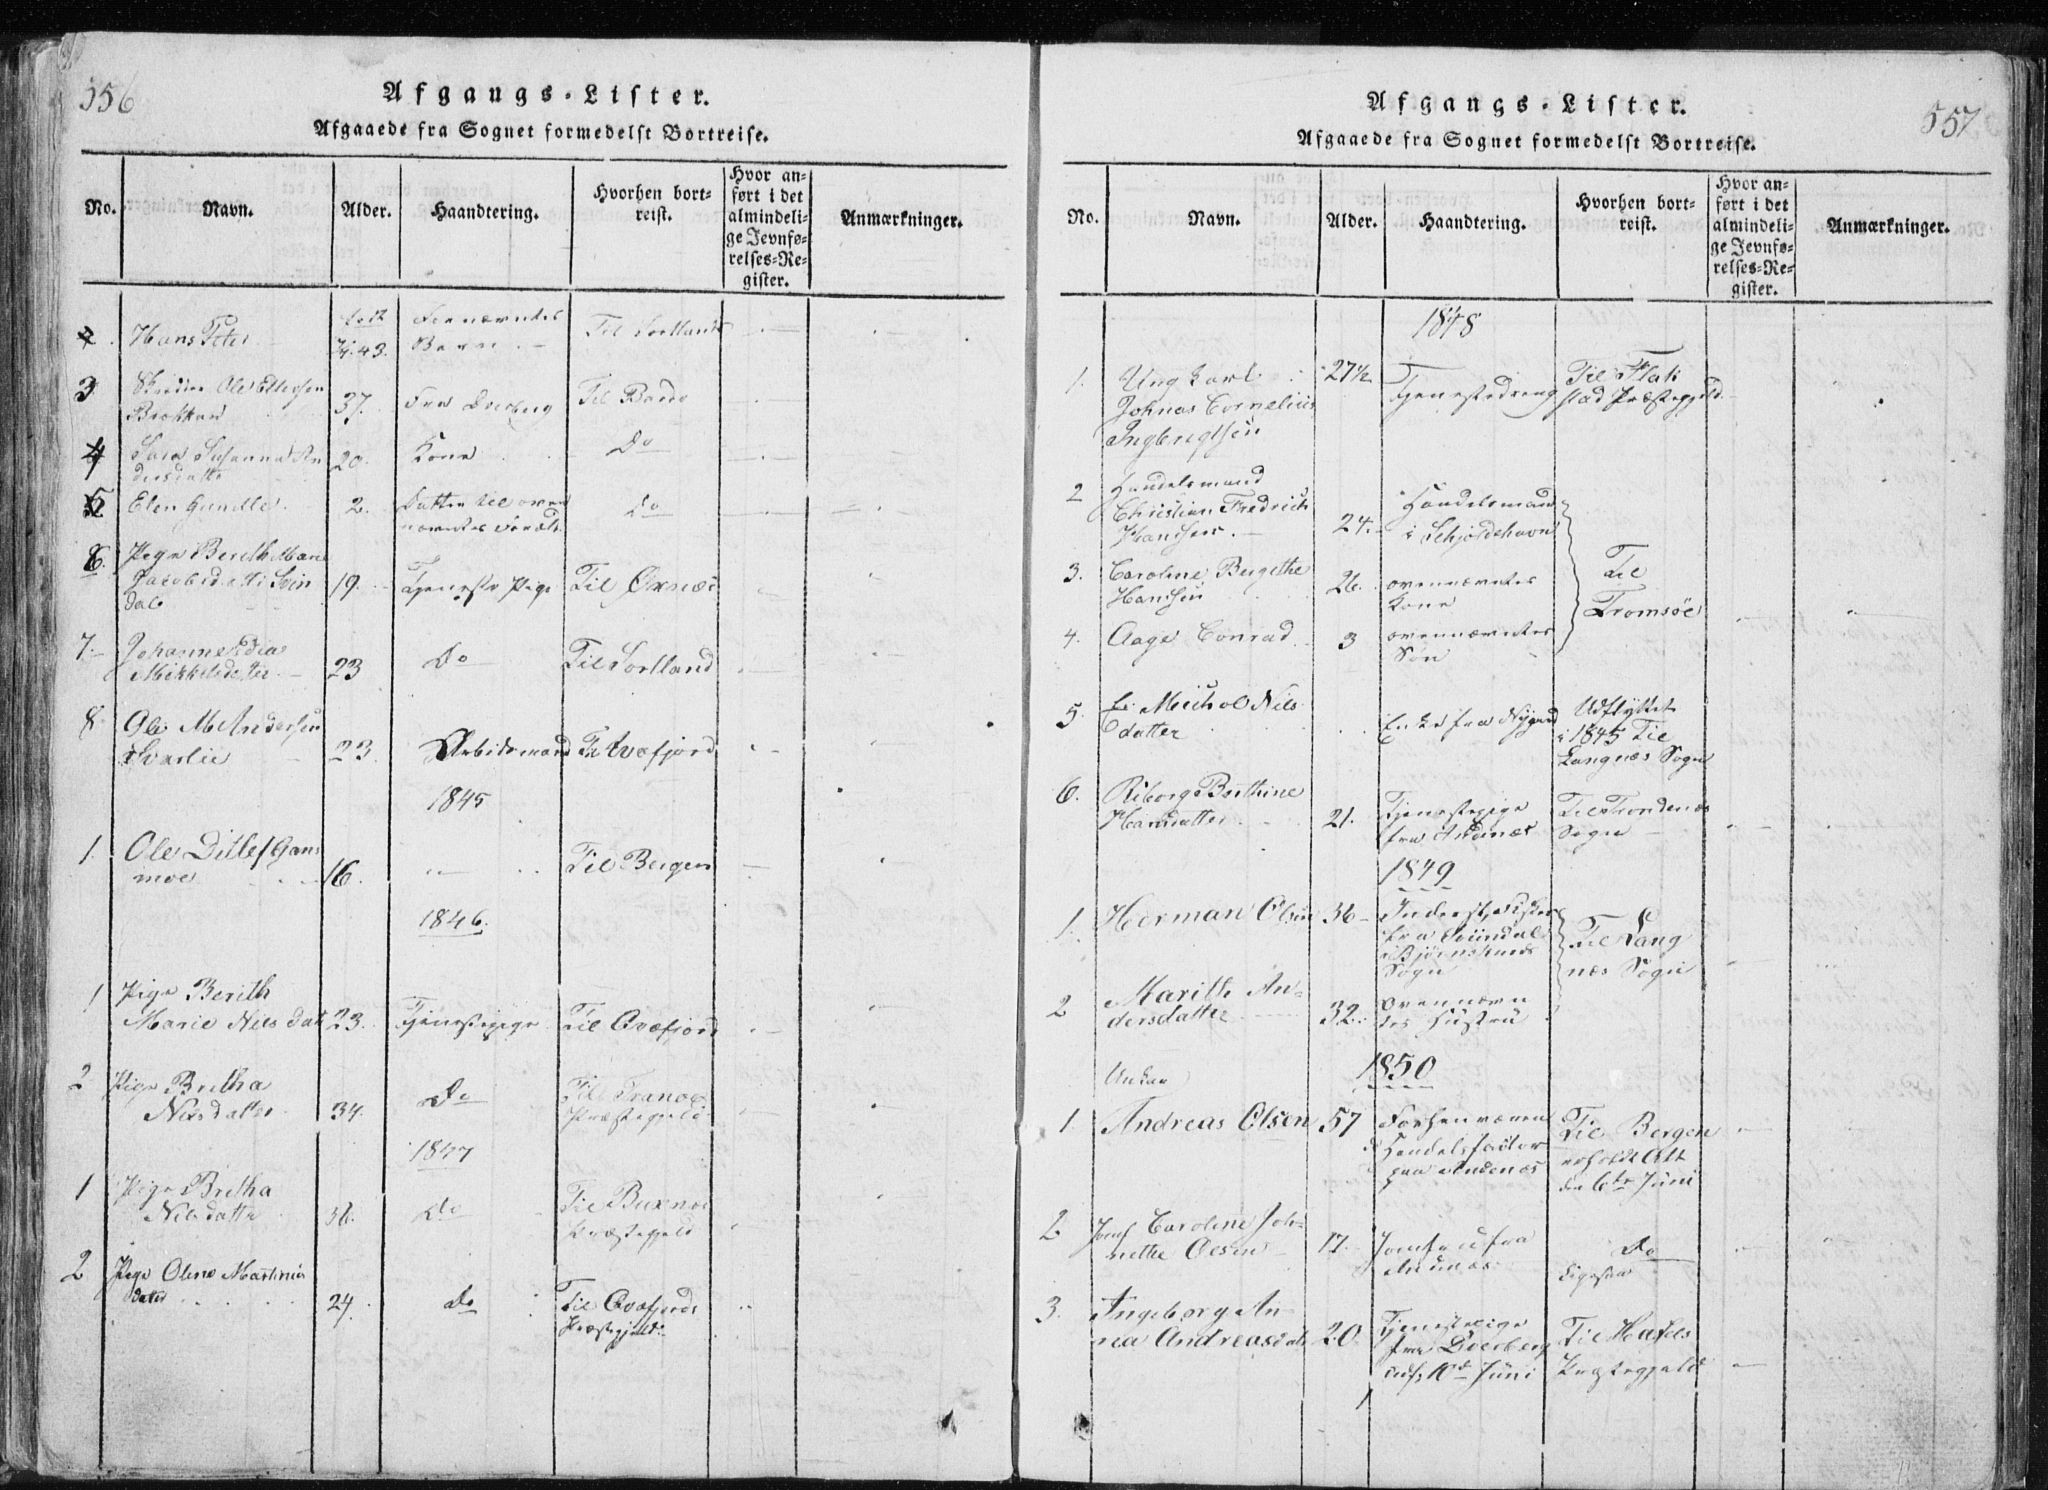 556
Afgangs-Lister.
Afgaaede fra Sognet formedelst Bortreise.
No. Navn. Alder. Haandtering. Hvorhen bortreist. Hvor anført i det almindelige Jevnførelses-Register. Anmærkninger.
Hans Peter født 43. Børn Til Sortland
3 Ole Ellefsen
Brokkar 37. Fra Dverberg Til Bodø
4 Sara Susanna An
dersdatter 20. Kone Do
5 Elen Gunille 2. Datter til oven
nævntes Do
6 Pige Berith Marie
Jacobsdatter Svin
dal 19. Tjeneste Pige Til Øxnæs
7. Johanne
Mikkelsdatter 23 Do Til Sortland
8 Ole M Andersen
23 Arbeidsmand Til Kvæfjord
1845
1. Ole Ditlef Hans
moe 16. Til Bergen
1846.
1 Pige Berith
Marie Nilsdatt 23. Tjenestepige Til Qvæfjord
2 Pige Bretha
Nilsdatter 34. Do Til Tranøe
Præstegjeld
1847
1 Pige Bretha
Nilsdatter 36. Do Til Buxnæs
Præstegjeld
2 Pige Oline Martinus
datter 24. Do Til Qvæfjords
Præstegjeld
557
Afgangs-Lister.
Afgaaede fra Sognet formedelst Bortreise.
No. Navn. Alder. Haandtering. Hvorhen bortreist. Hvor anført i det almindelige Jevnførelses-Register. Anmærkninger.
1848
1. Ungkarl
Johnas Cornelius
Ingbrigtsen 27½ Tjenestedreng Til Flak
stad Præstegjeld
2 Handelsmand
Christian Fredrich
Hansen. 24. Handelsmand
i Schjoldehavn
3. Caroline Bergithe
Hansen 26. ovennævntes
Kone Til
Tromsøe
4. Aage Conrad 3 ovennævntes
Søn
5. Michol Nils
datter Enke fra Nygaard Udflyttet
i 1845 Til
Langnæs Sogn
6. Riborg Berthine
Hansdatter 21. Tjenestepige
fra Andenæs Til Trondenæs
Sogn
1849
1. Herman Olsen 36 Inderst, Fisker
fra Svindal
i Bjørnskinds
Sogn Til Lang
næs Sogn
2 Marith An-
dersdatter 32. Ovennævn
tes Hustru
1850
Enkem
1 Andreas Olsen 57 Forhenværen
d Handelsfactor
paa Andenæs Til Bergen
erholdt Att
den 6te Juni
2 Jomf Caroline Joh-
nethe Olsen 17. Jomfru fra
Andenæs Do
ligesaa
3. Ingeborg An-
na Andreasdatt 20. Tjenestepige
fra Dverberg
10de Juni Til Hassels
Præstegjeld